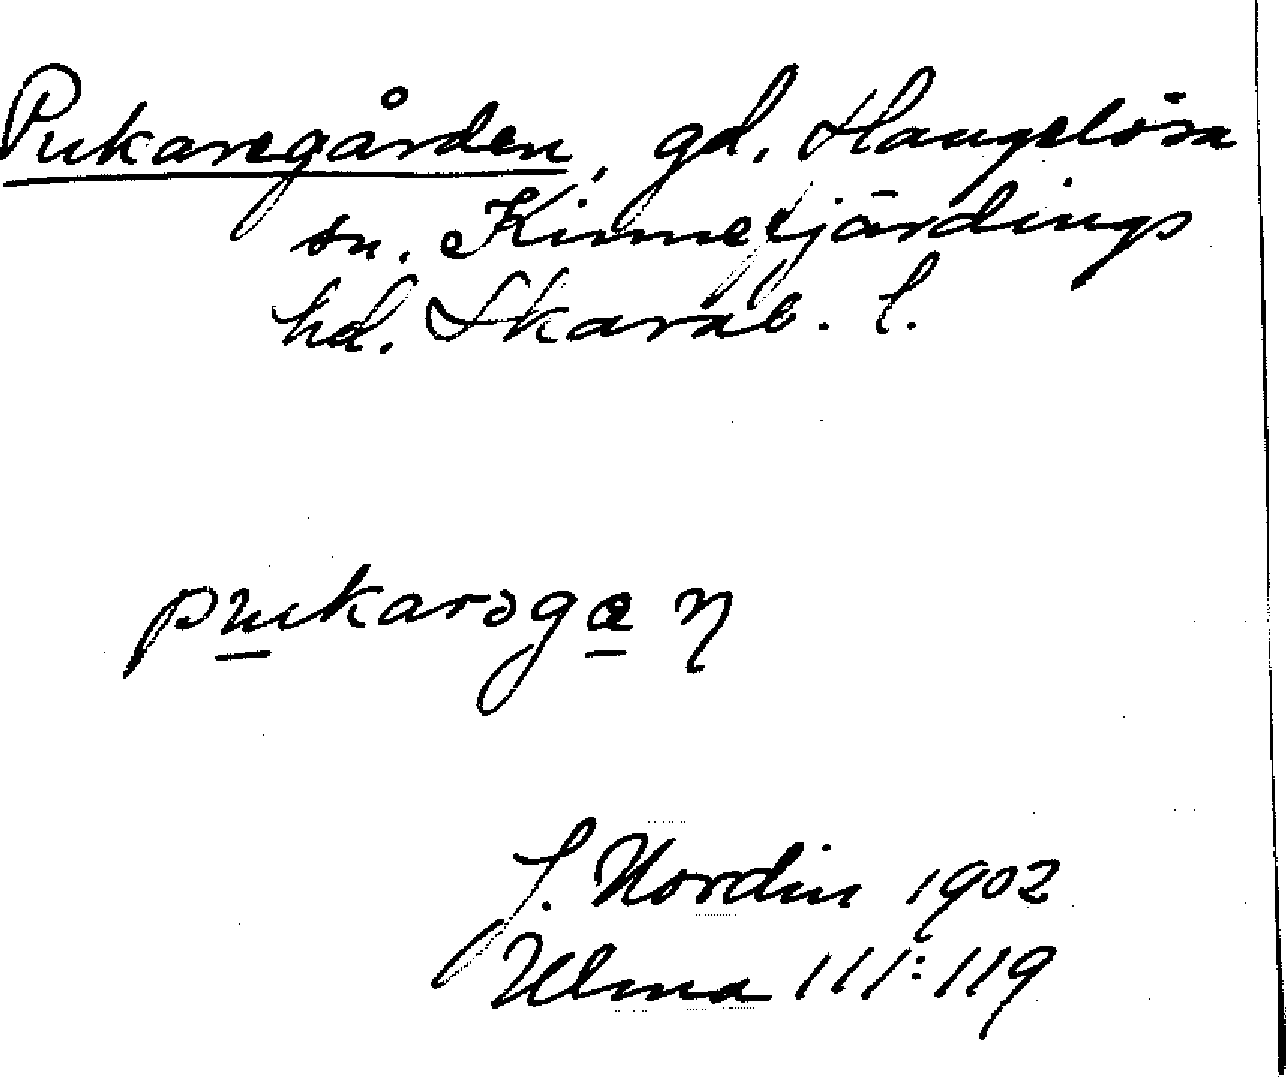 Pukaregården, gd. Hangelösa
sn. Kinnefjärdings
hd. Skarab. l.
pukarəgaꞃ
J. Nordin 1902
Ulma 111:119